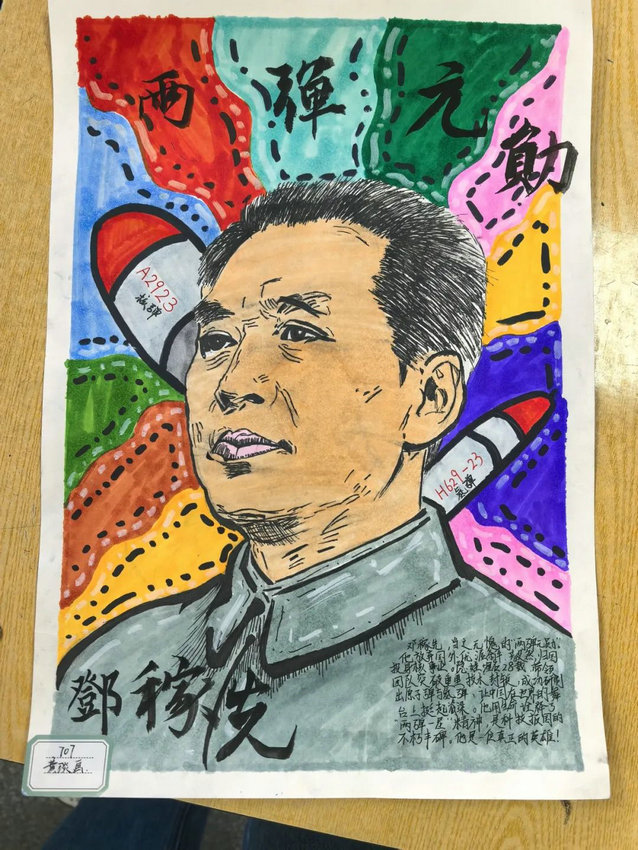 两弹元勋
A2923
核弹
H629-23
氢弹
鄧稼先
邓稼先，当之无愧的“两弹元勋”。
他放弃国外优渥，毅然归国
投身核事业。隐姓埋名28载，带领
团队突破重重技术封锁，成功研制
出原子弹与氢弹，让中国在世界的舞
台上挺起脊梁。他用生命诠释了
两弹一星精神，是科技报国的
不朽丰碑。他是一位真正的英雄！
707